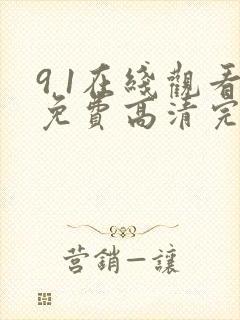 9.1在綫觀看
免費高清完
營銷—讓